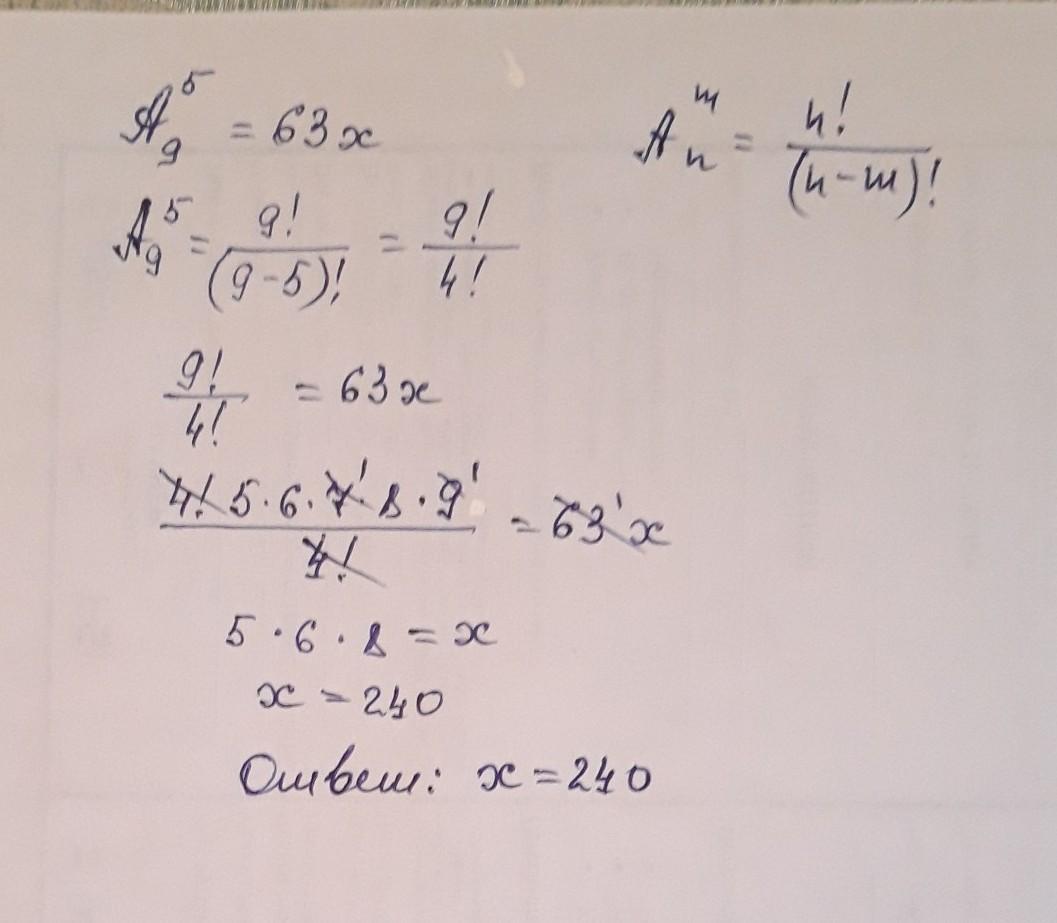 A₉⁵ = 63x
Aₙᵐ = n! / (n-m)!
A₉⁵ = 9! / (9-5)! = 9! / 4!
9! / 4! = 63x
4! 5 · 6 · 7¹ 8 · 9¹ / 4! = 63¹ x
5 · 6 · 8 = x
x = 240
Ответ: x = 240